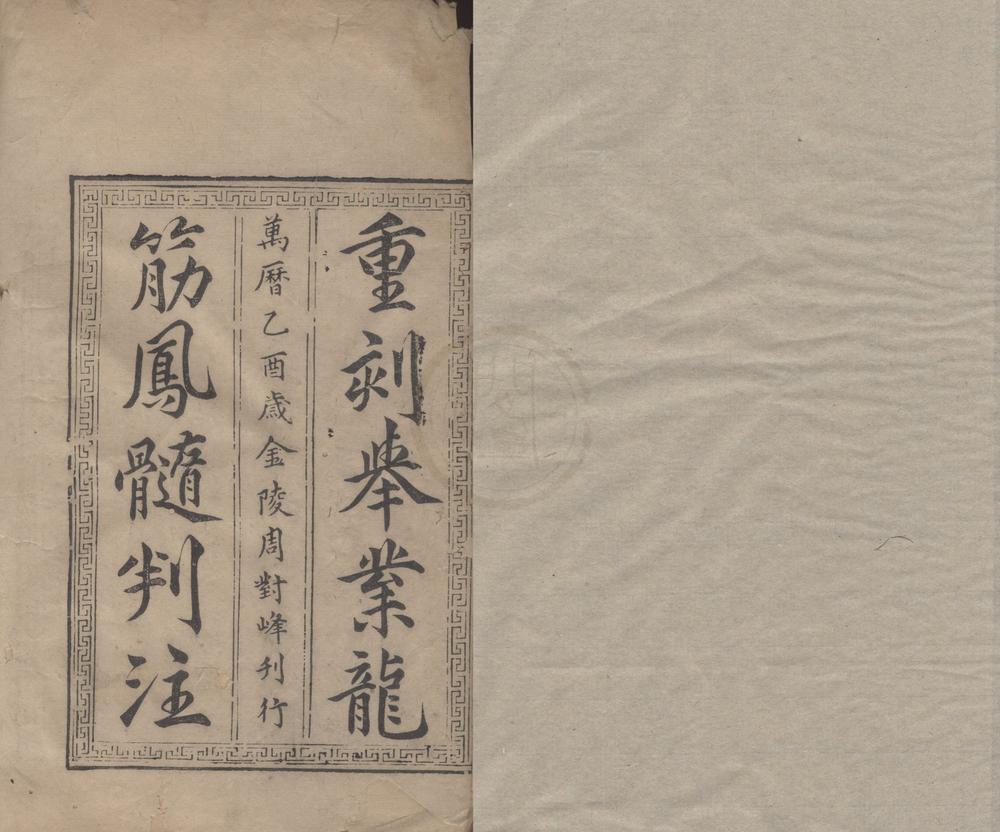 重刻舉業龍
萬曆乙酉歲金陵周對峰刊行
筋鳳髓判注